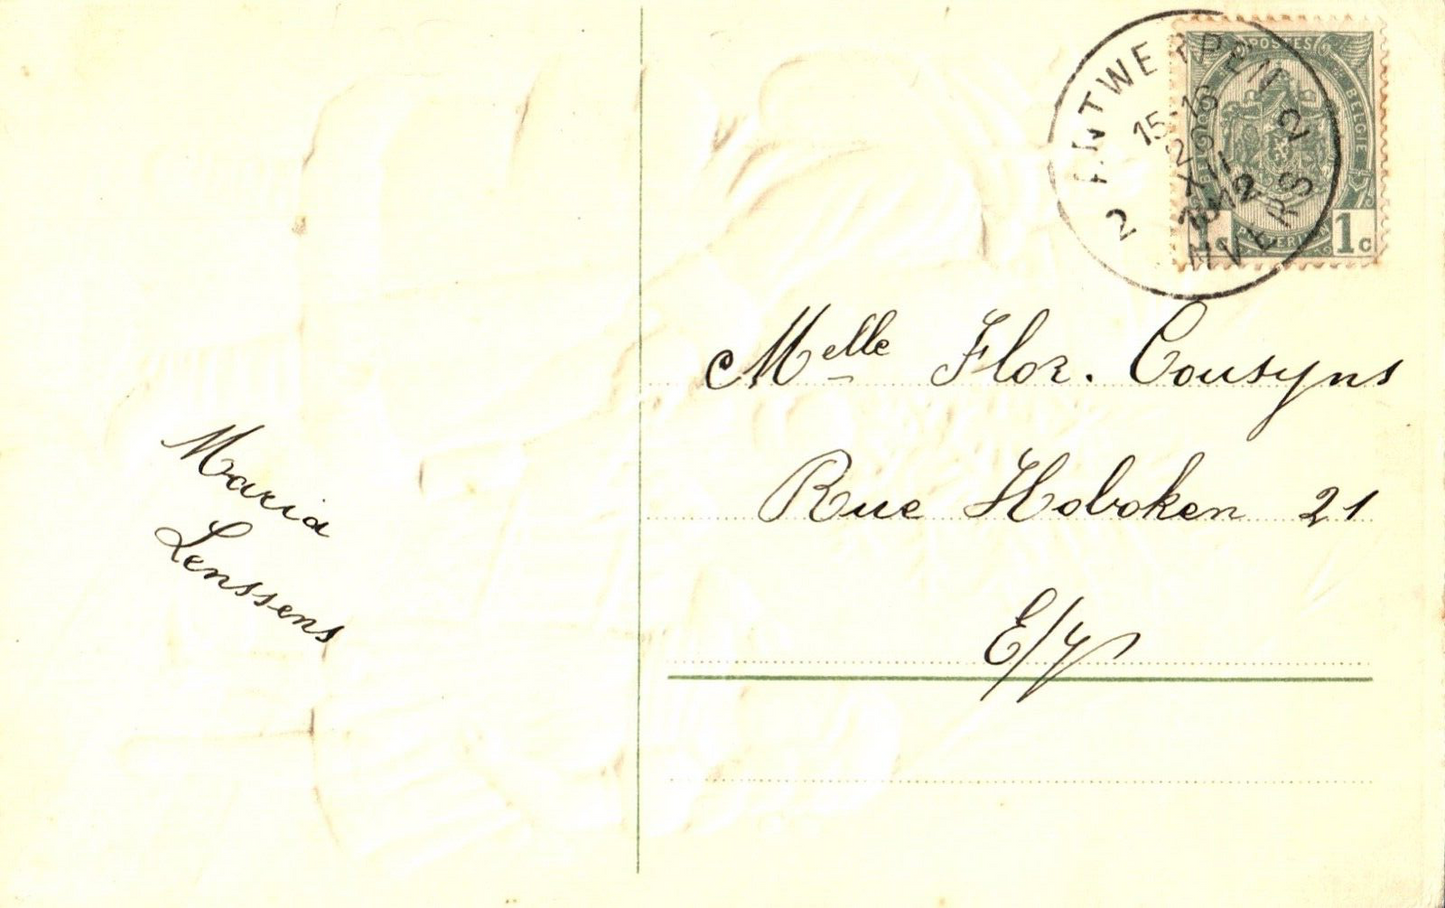 Maria
Lenssens
ANTWERPEN 2
15-16
29
XII
1912
ANVERS 2
POSTES
BELGIE
1c 1c
Melle Flor. Cousyns
Rue Hoboken 21
E/V